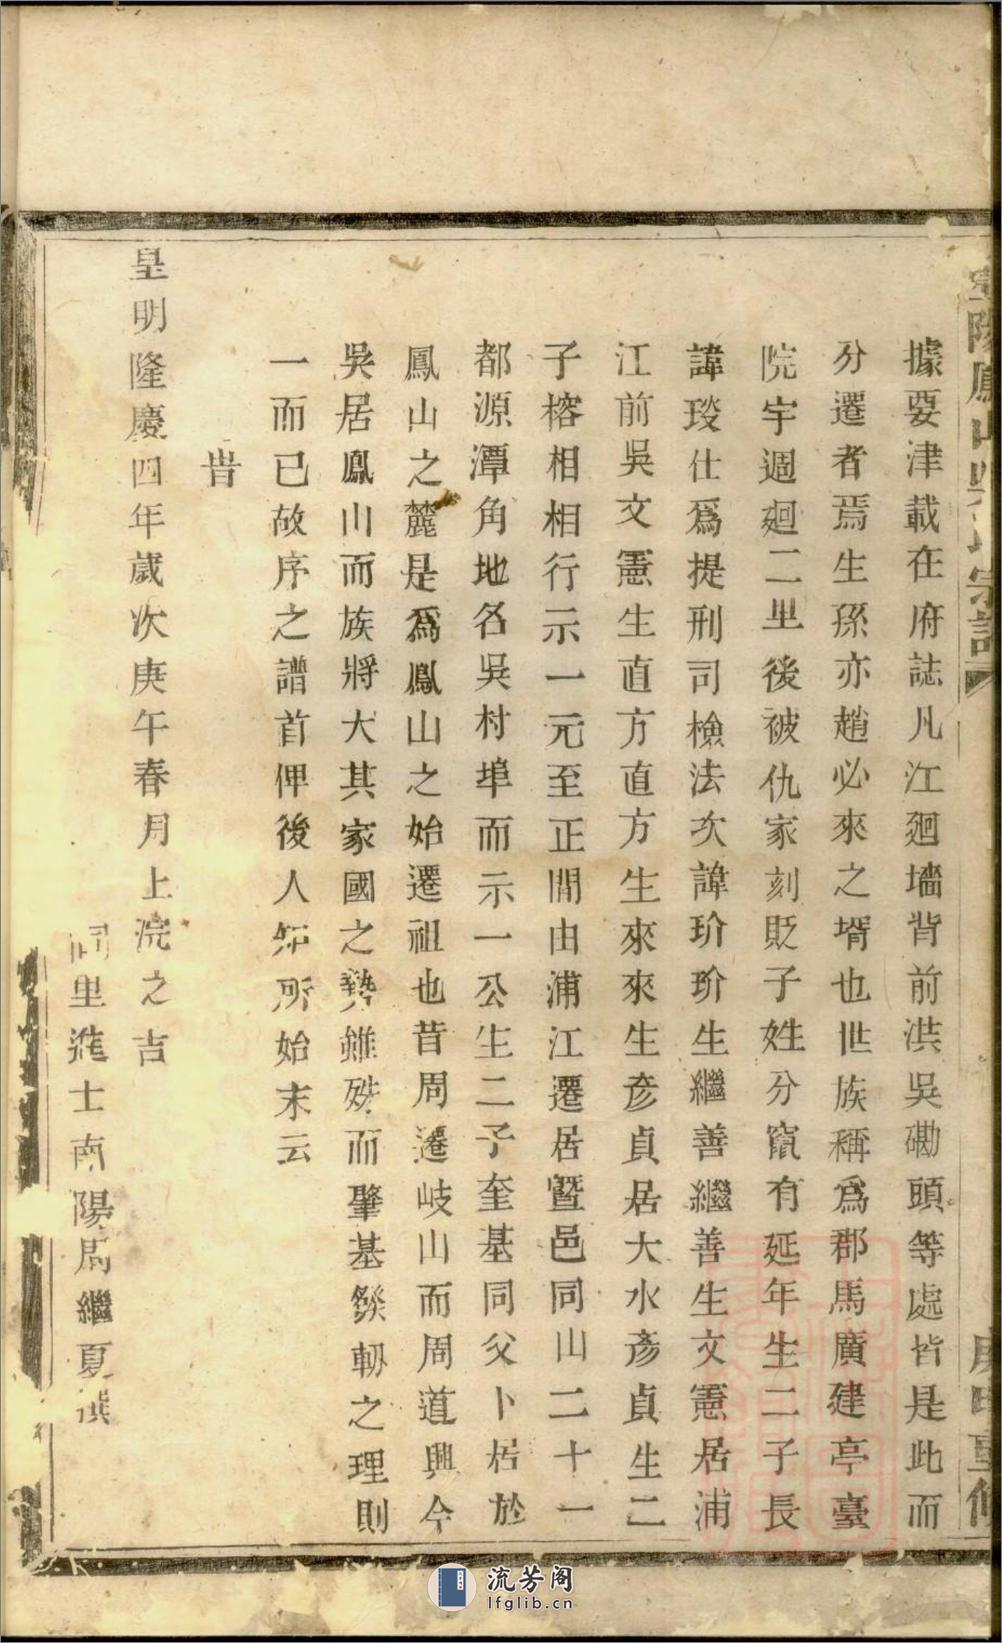 陽鳳山吳氏宗譜
據要津載在府誌凡江廻墻背前洪吳磡頭等處皆是此而
分遷者焉生孫亦趙必來之壻也世族稱爲郡馬廣建亭臺
院宇週廻二里後被仇家刻貶子姓分竄有延年生二子長
諱琰仕爲提刑司檢法次諱玠玠生繼善繼善生文憲居浦
江前吳文憲生直方直方生來來生彥貞居大水彥貞生二
子榕相相行示一元至正間由浦江遷居暨邑同山二十一
都源潭角地名吳村埠而示一公生二子奎基同父卜居於
鳳山之麓是爲鳳山之始遷祖也昔周遷岐山而周道興今
吳居鳳山而族將大其家國之勢雖殊而肇基發軔之理則
一而已故序之譜首俾後人知所始末云
旹
皇明隆慶四年歲次庚午春月上浣之吉
同里進士南陽周繼夏撰
流芳阁
lfglib.cn